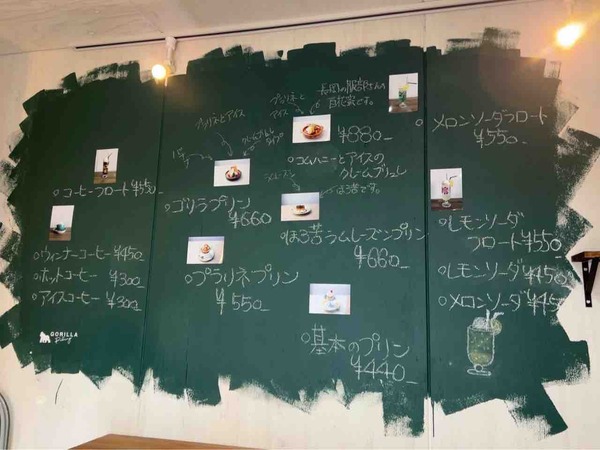 。コーヒーフロート ¥550
。ウィンナーコーヒー ¥450
。ホットコーヒー ¥300
。アイスコーヒー ¥300
GORILLA
プリネとアイス
。ゴリラプリン
¥660
。プラリネプリン
¥550
プリネと
アイス
長岡の服部さんの
百花蜜です。
¥880
。コムハニーとアイスの
クレームブリュレ
ラムレーズン
ほろ苦です。
。ほろ苦ラムレーズンプリン
¥660
。基本のプリン
¥440
。メロンソーダフロート
¥550
。レモンソーダ
フロート¥550
。レモンソーダ ¥450
。メロンソーダ ¥450